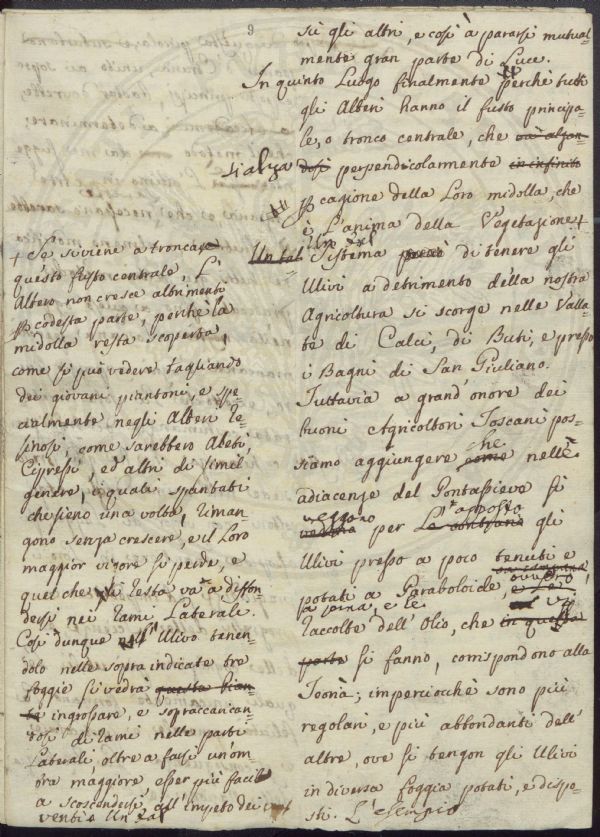 9
sie gli altri, e così à pararsi mutual-
mente gran parte di Luce.
In quinto Luogo finalmente perchè tutti
gli Alberi hanno il fusto principa-
le, o tronco centrale, che và alzan-
s'alza dosi perpendicolarmente in infinito
ꝑ cagione della Loro midolla, che
è L'anima della Vegetazione +
Un tal Sistema di tenere gli
Ulivi a detrimento della nostra
Agricoltura si scorge nelle Valla-
te di Calci, di Buti, e presso
i Bagni di San Giuliano.
Tuttavia a grand'onore dei
buoni Agricoltori Toscani pos-
siamo aggiungere come che nelle
adiacenze del Pontassieve si
veggono per L'apposto gli
Ulivi presso a poco tenuti e
potati a Paraboloide, ovvero
a jarra, e le
raccolte dell'Olio, che in questa ivi
parte si fanno, corrispondono alla
Teorìa; imperciocchè sono più
regolari, e più abbondanti dell'
altre, ove si tengon gli Ulivi
in diversa foggia potati, e dispo-
sti. L'esempio
+ Se si viene a troncare
questo fusto centrale, L'
Albero non cresce altrimenti
ꝑ codesta parte, perchè la
midolla resta scoperta,
come si può vedere tagliando
dei giovani piantoni, e spe-
cialmente negli Alberi Re-
sinosi, come sarebbero Abeti,
Cipressi, ed altri di simil
genere, i quali spuntati
che sieno una volta, riman-
gono senza crescere, e il Loro
maggior vigore si perde, e
quel che gli resta va a diffon
dersi nei rami Laterali.
Così dunque nell' Ulivo tenen-
dolo nelle sopra indicate tre
foggie si vedrà questa pian-
ta ingrossare, e sopraccarican-
dosi di rami nelle parti
Laterali, oltre a farsi un'om
bra maggiore esser più facile
a scoscendersi all'impeto dei
venti. Un tal